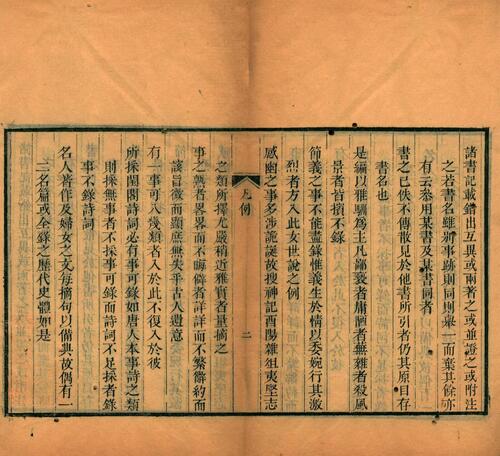 諸書記載錯出互異或兩著之或並證之或附注
之若書名雖新事跡則同則舉一而棄其餘亦
有云叅用某書及某書同者
書之已佚不傳散見於他書所引者仍其原目存
書名也
是編以雅馴爲主凡鄙褻者庸陋者無雜者殺風
景者皆損不錄
節義之事不能盡錄惟義生於情以委婉行其激
烈者方入此女世說之例
感幽之事多涉詭誕故搜神記酉陽雜俎夷堅志
凡例
二
之類所擇尤嚴稍近雅實者量摘之
事之熟者畧畧而不晦僻者詳詳而不繁辭約而
該旨微而顯庶無失乎古人遺意
有一事可入幾類者入於此不復入於彼
所採閨閣詩詞必有事可錄如唐人本事詩之類
則採無事者不採事可錄而詩詞不足採者錄
事不錄詩詞
名人著作及婦女之文每摘句以備典故偶有一
二名篇或全錄之歷代史體如是